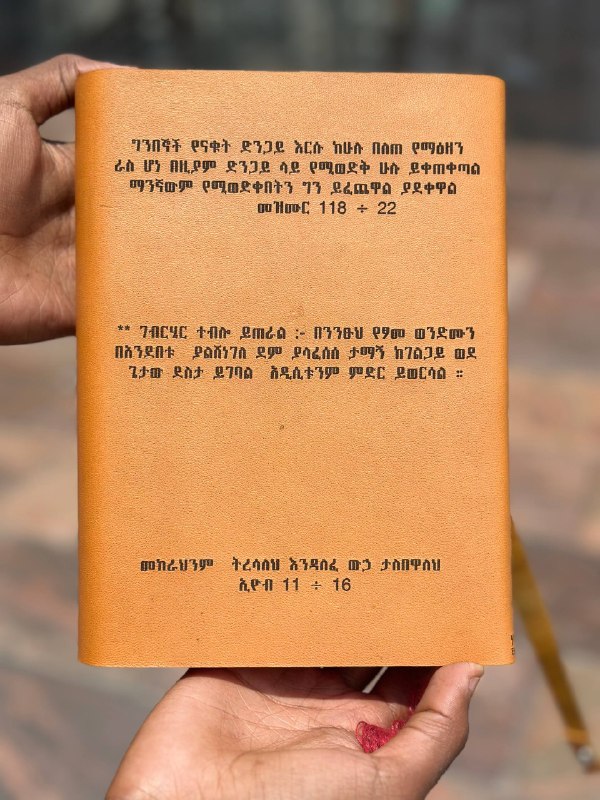 ግንበኞች የናቁት ድንጋይ እርሱ ከሁሉ በለጠ የማዕዘን
ራስ ሆነ በዚያም ድንጋይ ላይ የሚወድቅ ሁሉ ይቀጠቀጣል
ማንኛውም የሚወድቀበትን ግን ይፈጨዋል ያደቀዋል
መዝሙር 118 ÷ 22
** ገብርሄር ተብሎ ይጠራል :- በንፁህ የፆመ ወንድሙን
በአንደበቱ ያልሸነገለ ደም ያላፈሰሰ ታማኝ ከገልጋይ ወደ
ጌታው ደስታ ይገባል አዲሲቱንም ምድር ይወርሳል ።
መከራህንም ትረሳለህ እንዳለፈ ውኃ ታስበዋለህ
ኢዮብ 11 ÷ 16